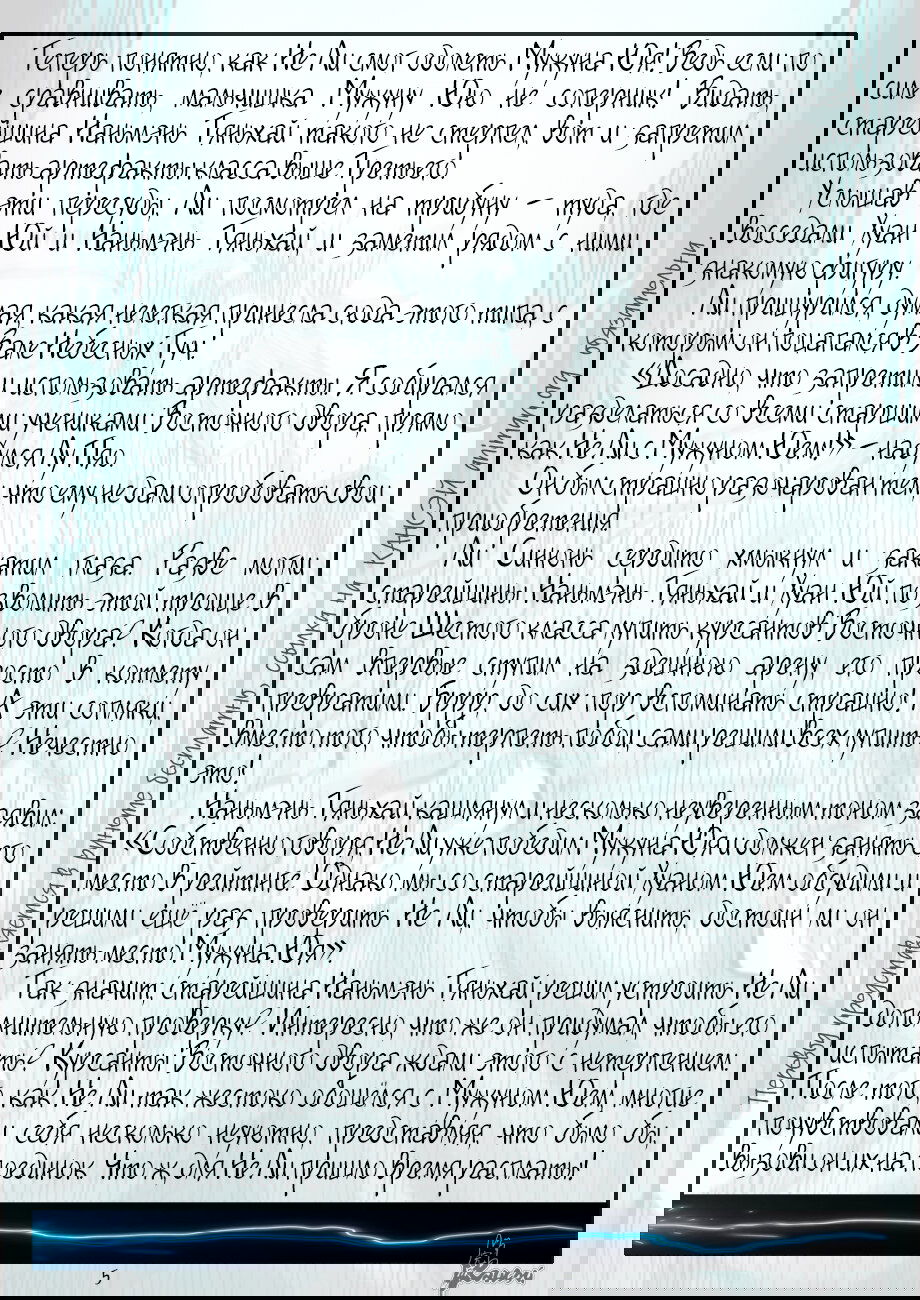 Теперь понятно, как Не Ли смог одолеть Мужуна Юя! Ведь если по
силе сравнивать, мальчишка Мужуну Юю не соперник! Видать
старейшина Наньмэнь Тяньхай такого не стерпел, вот и запретил
использовать артефакты класса выше Третьего!
Услышав эти пересуды, Ли посмотрел на трибуну – туда, где
восседали Хуан Юй и Наньмэнь Тяньхай, и заметил рядом с ними
знакомую фигуру.
Ли прищурился, думая, какая нелёгкая принесла сюда этого типа, с
которым он поцапался в Зале Небесных Туч!
«Досадно, что запретили использовать артефакты. Я собирался
разделаться со всеми старшими учениками Восточного двора, прямо
как Не Ли с Мужуном Юем!» – надулся Ли
Он был страшно разочарован тем, что ему не дали опробовать свои
приобретения.
Ли Синюнь сердито хмыкнул и закатил глаза. Разве могли
старейшины Наньмэнь Тяньхай и Хуан Юй позволить этой троице в
броне Шестого класса лупить курсантов Восточного двора? Когда он
сам впервые ступил на здешнюю арену, его просто в котлету
превратили. Бррр, до сих пор вспоминать страшно! А эти сопляки,
вместо того, чтобы терпеть побои, сами решили всех лупить? Нечестно
это!
Наньмэнь Тяньхай кашлянул и несколько неуверенным тоном заявил:
«Собственно говоря, Не Ли уже победил Мужуна Юя и должен занять его
место в рейтинге. Однако мы со старейшиной Хуаном Юем обсудили и
решили ещё раз проверить Не Ли, чтобы выяснить, достоин ли он
занять место Мужуна Юя»
Так значит, старейшина Наньмэнь Тяньхай решил устроить Не Ли
дополнительную проверку? Интересно, что же он придумал, чтобы его
испытать? Курсанты Восточного двора ждали этого с нетерпением.
После того как Не Ли так жестоко обошёлся с Мужуном Юем, многие
почувствовали себя несколько неуютно, представляя, что было бы,
вызови он их на поединок. Что ж, для Не Ли пришло время расплаты!
5